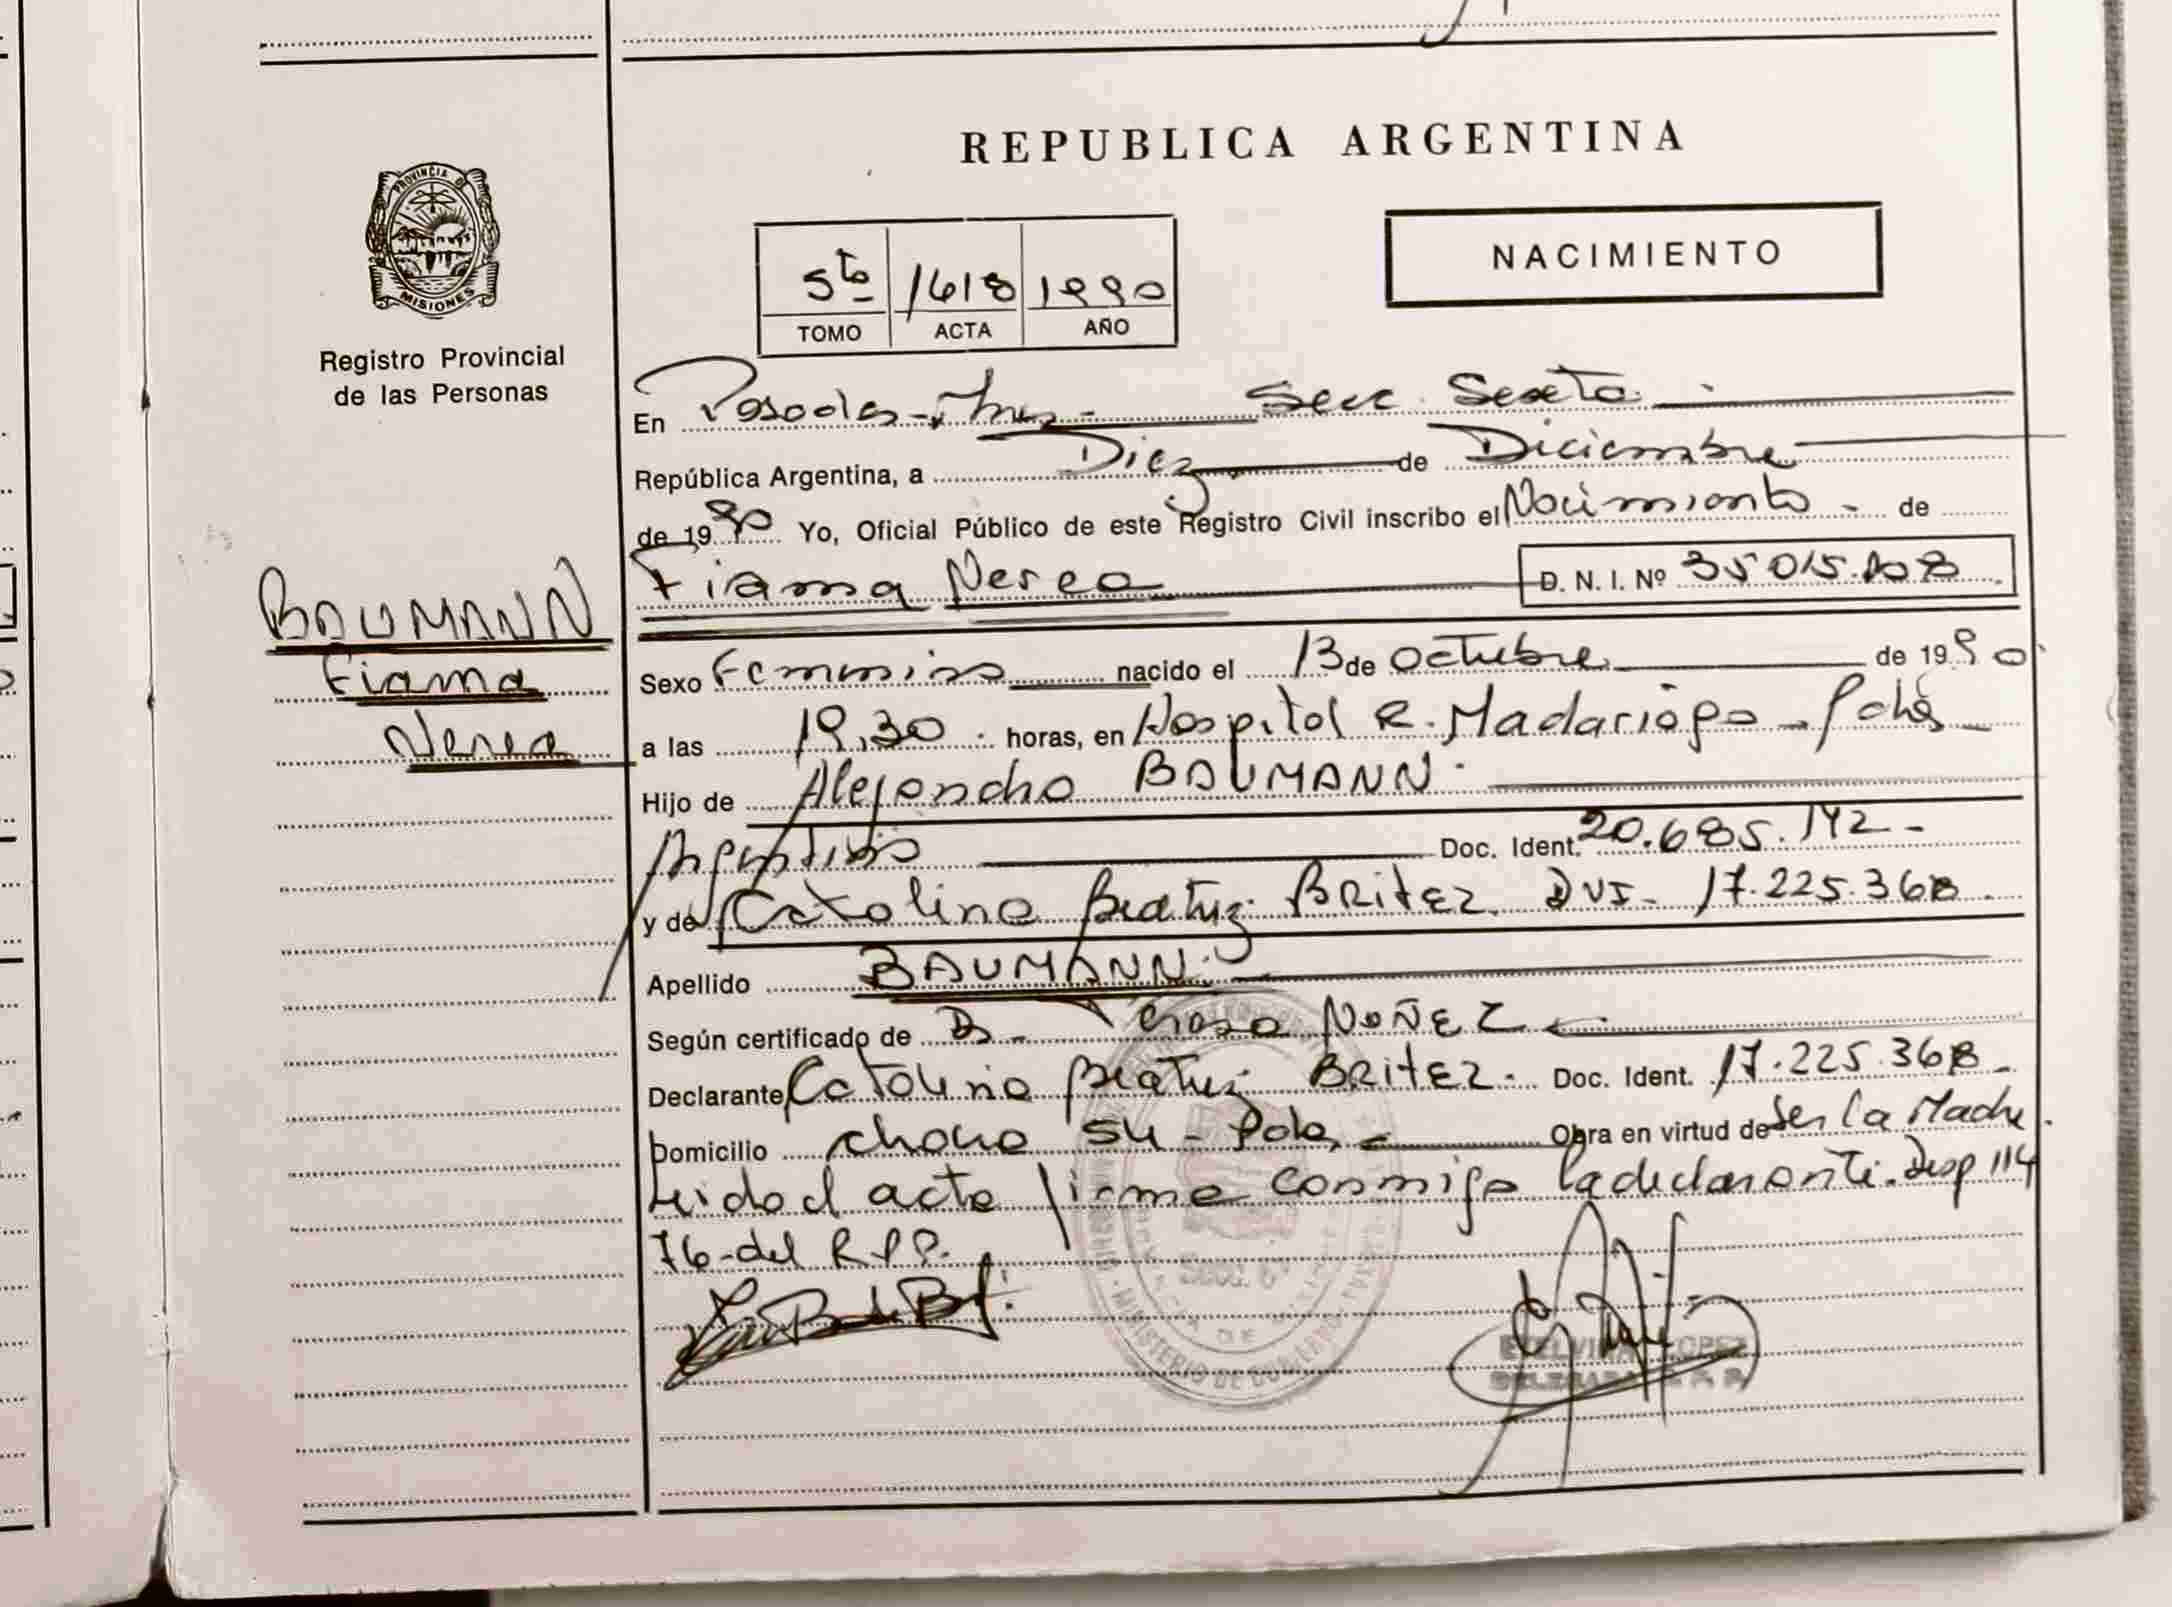 REPUBLICA ARGENTINA
NACIMIENTO
PROVINCIA DE
MISIONES
Registro Provincial
de las Personas
5to 1618 1990
TOMO ACTA AÑO
En Posadas - Mnes - Secc. Sexta
República Argentina, a Diez de Diciembre
de 1990 Yo, Oficial Público de este Registro Civil inscribo el Nacimiento - de
Fiama Nerea D. N. I. Nº 35.015.
BAUMANN
Fiama
Nerea
Sexo Femenino nacido el 13 de Octubre de 1990
a las 19,30 horas, en Hospital R. Madariaga -
Hijo de Alejandro BAUMANN
Argentino Doc. Ident. 20.685.142 -
y de Catalina Beatriz BRITEZ DNI - 17.225.368
Apellido BAUMANN
Según certificado de NUÑEZ
Declarante Catalina Beatriz BRITEZ Doc. Ident. 17.225.368 -
Domicilio SN - Obra en virtud de Ser la Madre.
Leida el acta firma conmigo la declarante. Disp 114
76 - del R.P.P.
MINISTERIO DE GOBIERNO
ETELVINA LOPEZ
DELEGADA R. P. P.